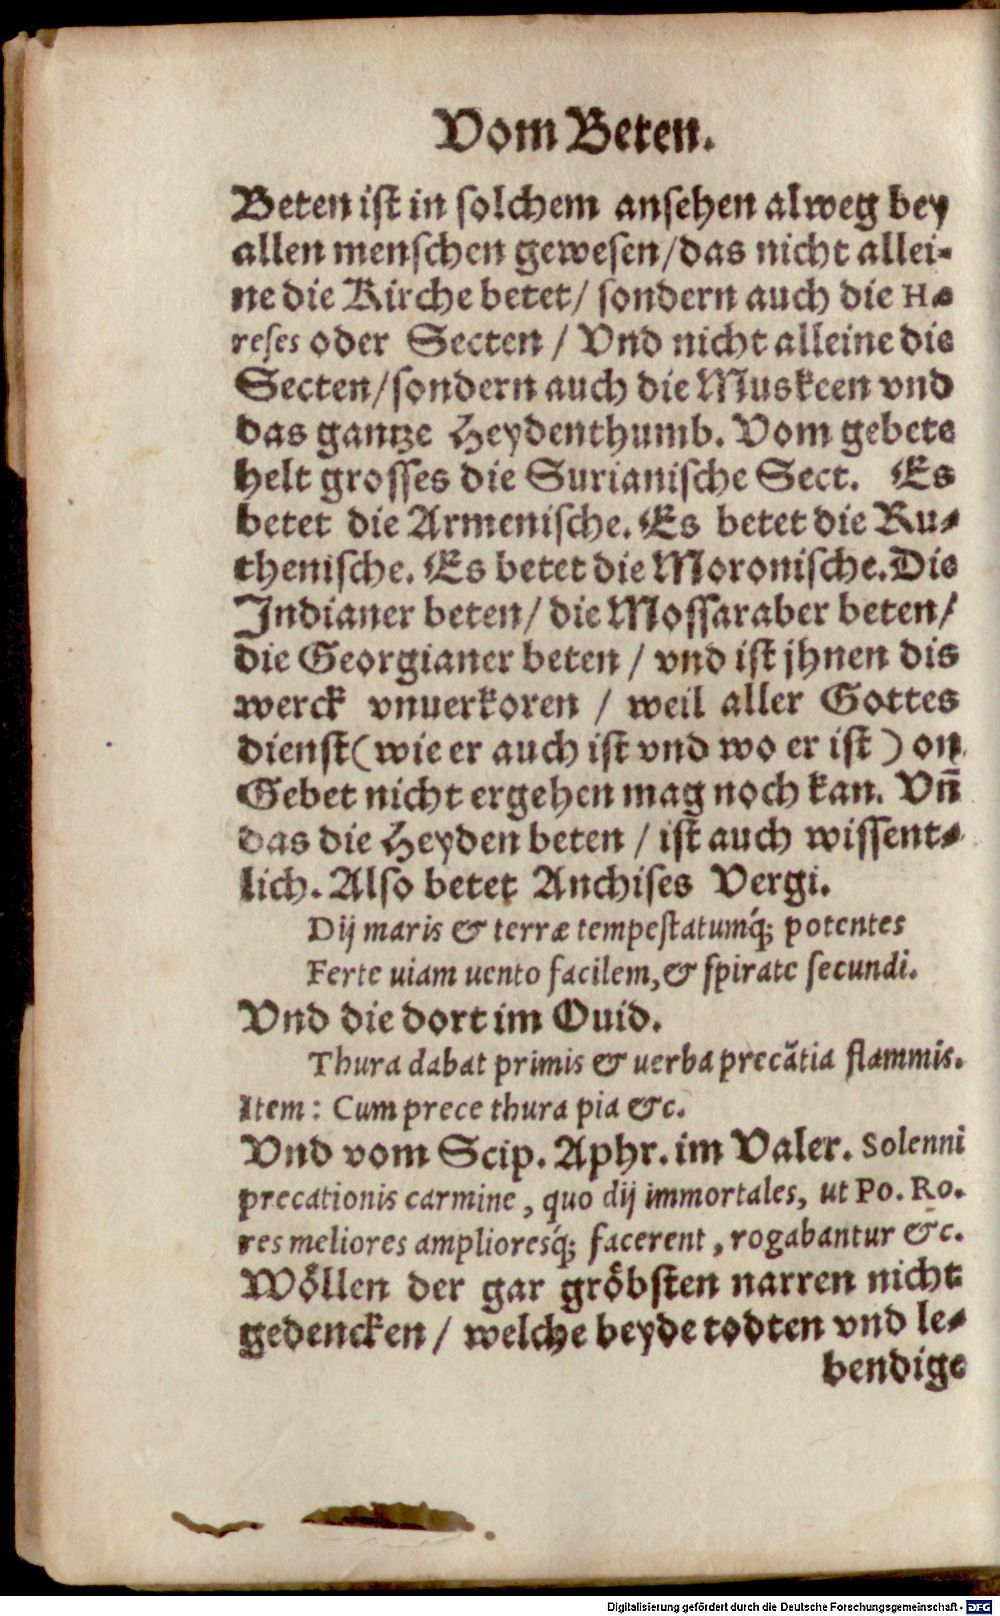 Vom Beten.
Beten ist in solchem ansehen alweg bey
allen menschen gewesen/das nicht allei-
ne die Kirche betet/ sondern auch die Hæ
reses oder Secten / Vnd nicht alleine die
Secten/sondern auch die Muskeen vnd
das gantze Heydenthumb. Vom gebete
helt grosses die Surianische Sect. Es
betet die Armenische. Es betet die Ru-
thenische. Es betet die Moronische. Die
Indianer beten/ die Mossaraber beten/
die Georgianer beten / vnd ist jhnen dis
werck vnuerkoren / weil aller Gottes
dienst (wie er auch ist vnd wo er ist) on
Gebet nicht ergehen mag noch kan. Vñ
das die Heyden beten / ist auch wissent-
lich. Also betet Anchises Vergi.
Dij maris & terræ tempestatumq́; potentes
Ferte uiam uento facilem, & spirate secundi.
Vnd die dort im Ouid.
Thura dabat primis & uerba precãtia flammis.
Item : Cum prece thura pia &c.
Vnd vom Scip. Aphr. im Valer. Solenni
precationis carmine, quo dij immortales, ut Po. Ro.
res meliores amplioresq́; facerent, rogabantur &c.
Wöllen der gar gröbsten narren nicht
gedencken / welche beyde todten vnd le-
bendige
Digitalisierung gefördert durch die Deutsche Forschungsgemeinschaft - DFG